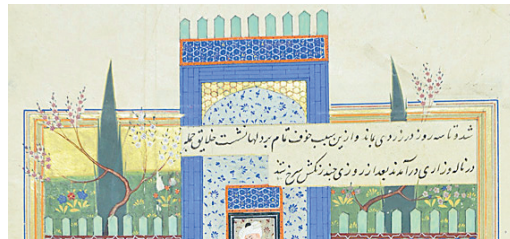 شد و تا سه روز در زردی بماند و ازین سبب خوف تمام بر دلها نشست خلایق جمله
در ناله و زاری در آمدند بعد از روزی چند رنگش سرخ شد